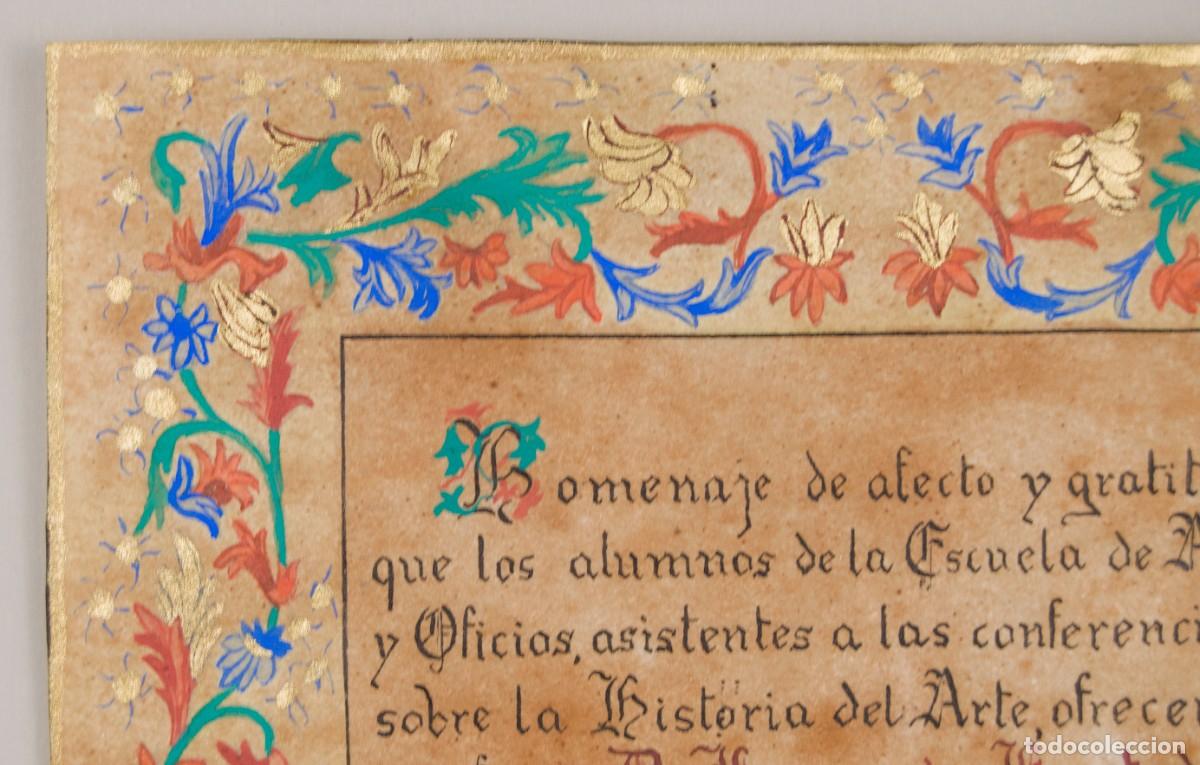 Homenaje de afecto y gratit
que los alumnos de la Escuela de A
y Oficios, asistentes a las conferenci
sobre la Historia del Arte, ofrecen
todocoleccion